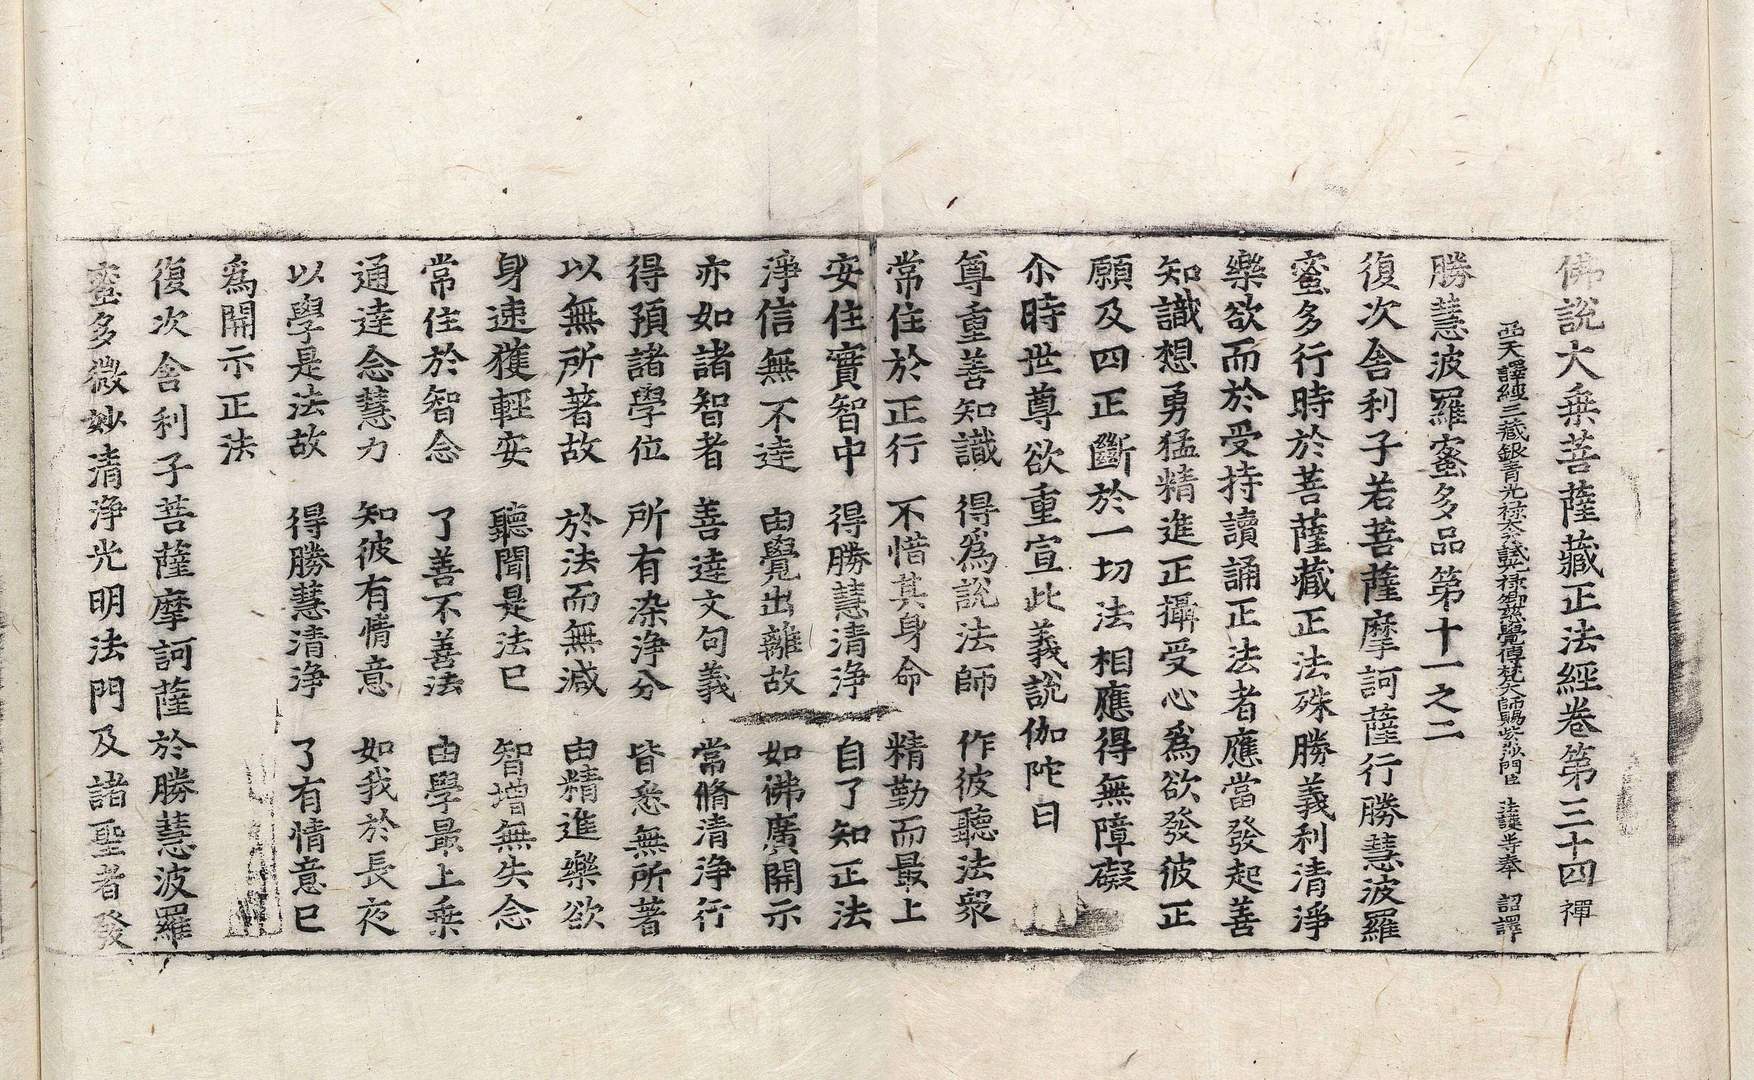 佛說大乘菩薩藏正法經卷第三十四 禪
西天譯經三藏銀青光祿大夫試光祿卿普覺傳梵大師賜紫沙門臣 法護等奉 詔譯
勝慧波羅蜜多品第十一之二
復次舍利子若菩薩摩訶薩行勝慧波羅
蜜多行時於菩薩藏正法殊勝義利清淨
樂欲而於受持讀誦正法者應當發起善
知識想勇猛精進正攝受心為欲發彼正
願及四正斷於一切法相應得無障礙
尒時世尊欲重宣此義說伽陀曰
尊重善知識 得為說法師 作彼聽法衆
常住於正行 不惜其身命 精勤而最上
安住實智中 得勝慧清淨 自了知正法
淨信無不達 由覺出離故 如佛廣開示
亦如諸智者 善達文句義 常脩清淨行
得預諸學位 所有染淨分 皆悉無所著
以無所著故 於法而無減 由精進樂欲
身速獲輕安 聽聞是法已 智增無失念
常住於智念 了善不善法 由學最上乘
通達念慧力 知彼有情意 如我於長夜
以學是法故 得勝慧清淨 了有情意已
爲開示正法
復次舍利子菩薩摩訶薩於勝慧波羅
蜜多微妙清淨光明法門及諸聖者發